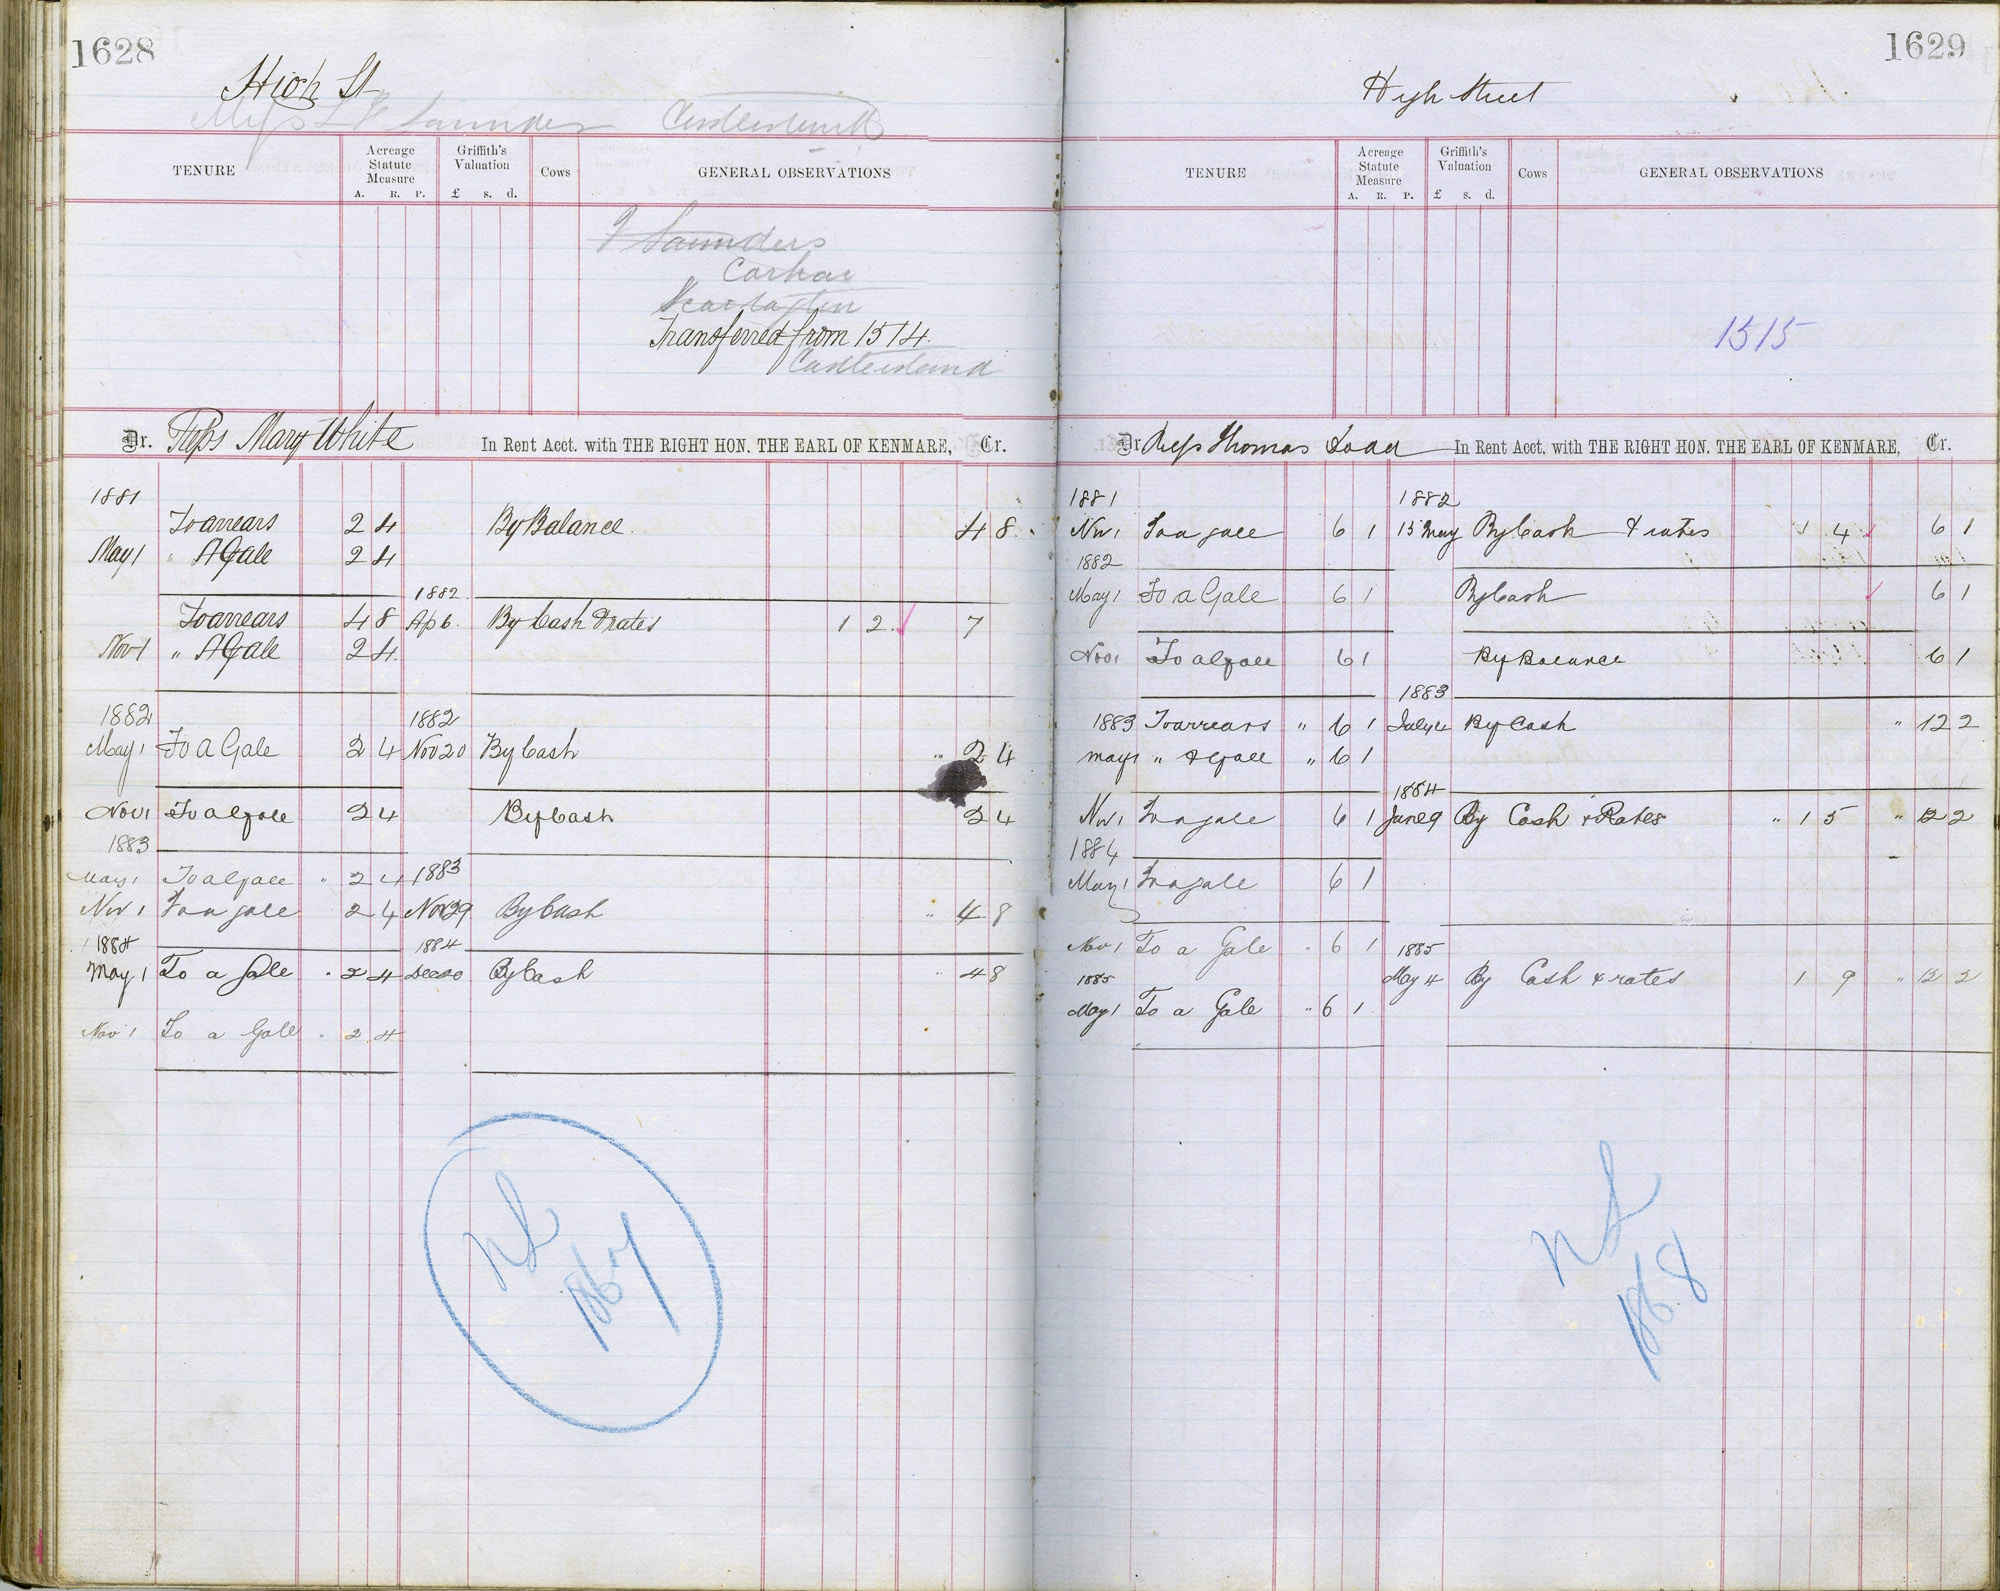 1628
High St
Miss Saunders Castleisland
TENURE
Acreage Statute Measure
A. R. P.
Griffith's Valuation
£ s. d.
Cows
GENERAL OBSERVATIONS
Saunders
Carhar
Transferred from 1514.
Castleisland
Dr. Reps Mary White In Rent Acct. with THE RIGHT HON. THE EARL OF KENMARE, Cr.
1881
To arrears 2 4 By Balance 4 8
May 1 " A Gale 2 4
1882
To arrears 4 8 Ap 6. By Cash & rates 1 2 7
Nov 1 " A Gale 2 4
1882 1882
May 1 To A Gale 2 4 Nov 20 By Cash " 2 4
Nov 1 To a gale 2 4 By Cash 2 4
1883
May 1 To a gale " 2 4 1883
Nov 1 To a gale 2 4 Nov 29 By Cash " 4 8
1884 1884
May 1 To a Gale " 2 4 Dec 20 By Cash " 4 8
Nov 1 To a Gale " 2 4
NL
1867
1629
High Street
TENURE
Acreage Statute Measure
A. R. P.
Griffith's Valuation
£ s. d.
Cows
GENERAL OBSERVATIONS
1515
Dr Reps Thomas In Rent Acct. with THE RIGHT HON. THE EARL OF KENMARE, Cr.
1881 1882
Nov 1 To a gale 6 1 15 May By Cash & rates 1 4 6 1
1882
May 1 To a Gale 6 1 By Cash 6 1
Nov 1 To a gale 6 1 By Balance 6 1
1883
1883 To arrears " 6 1 July 4 By Cash " 12 2
May 1 " A Gale " 6 1
1884
Nov 1 To a gale 6 1 June 9 By Cash & Rates " 1 5 " 12 2
1884
May 1 To a gale 6 1
Nov 1 To a Gale " 6 1 1885
1885 May 4 By Cash & rates 1 9 " 12 2
May 1 To a Gale " 6 1
NL
1868